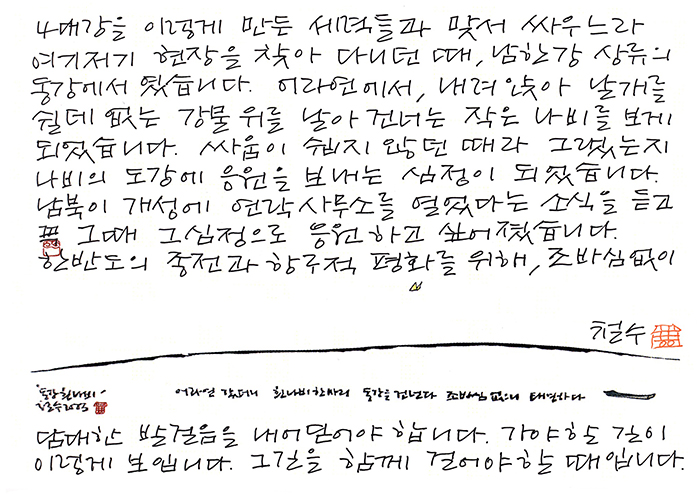 4대강을 이렇게 만든 세력들과 맞서 싸우느라
여기저기 현장을 찾아 다니던 때, 남한강 상류의
동강에서 였습니다. 어라연에서, 내려 앉아 날개를
쉴데 없는 강물 위를 날아 건너는 작은 나비를 보게
되었습니다. 싸움이 쉽지 않던 때라 그랬는지
나비의 도강에 응원을 보내는 심정이 되었습니다.
남북이 개성에 연락사무소를 열었다는 소식을 듣고
또 그때 그심정으로 응원하고 싶어졌습니다.
한반도의 종전과 항구적 평화를 위해, 조바심없이
철수
동강 흰나비
철수 2003
어라연 갔더니 흰나비 한마리 동강을 건넌다 조바심 없으니 태평하다
담대한 발걸음을 내어딛어야 합니다. 가야할 길이
이렇게 보입니다. 그길을 함께 걸어야할 때입니다.